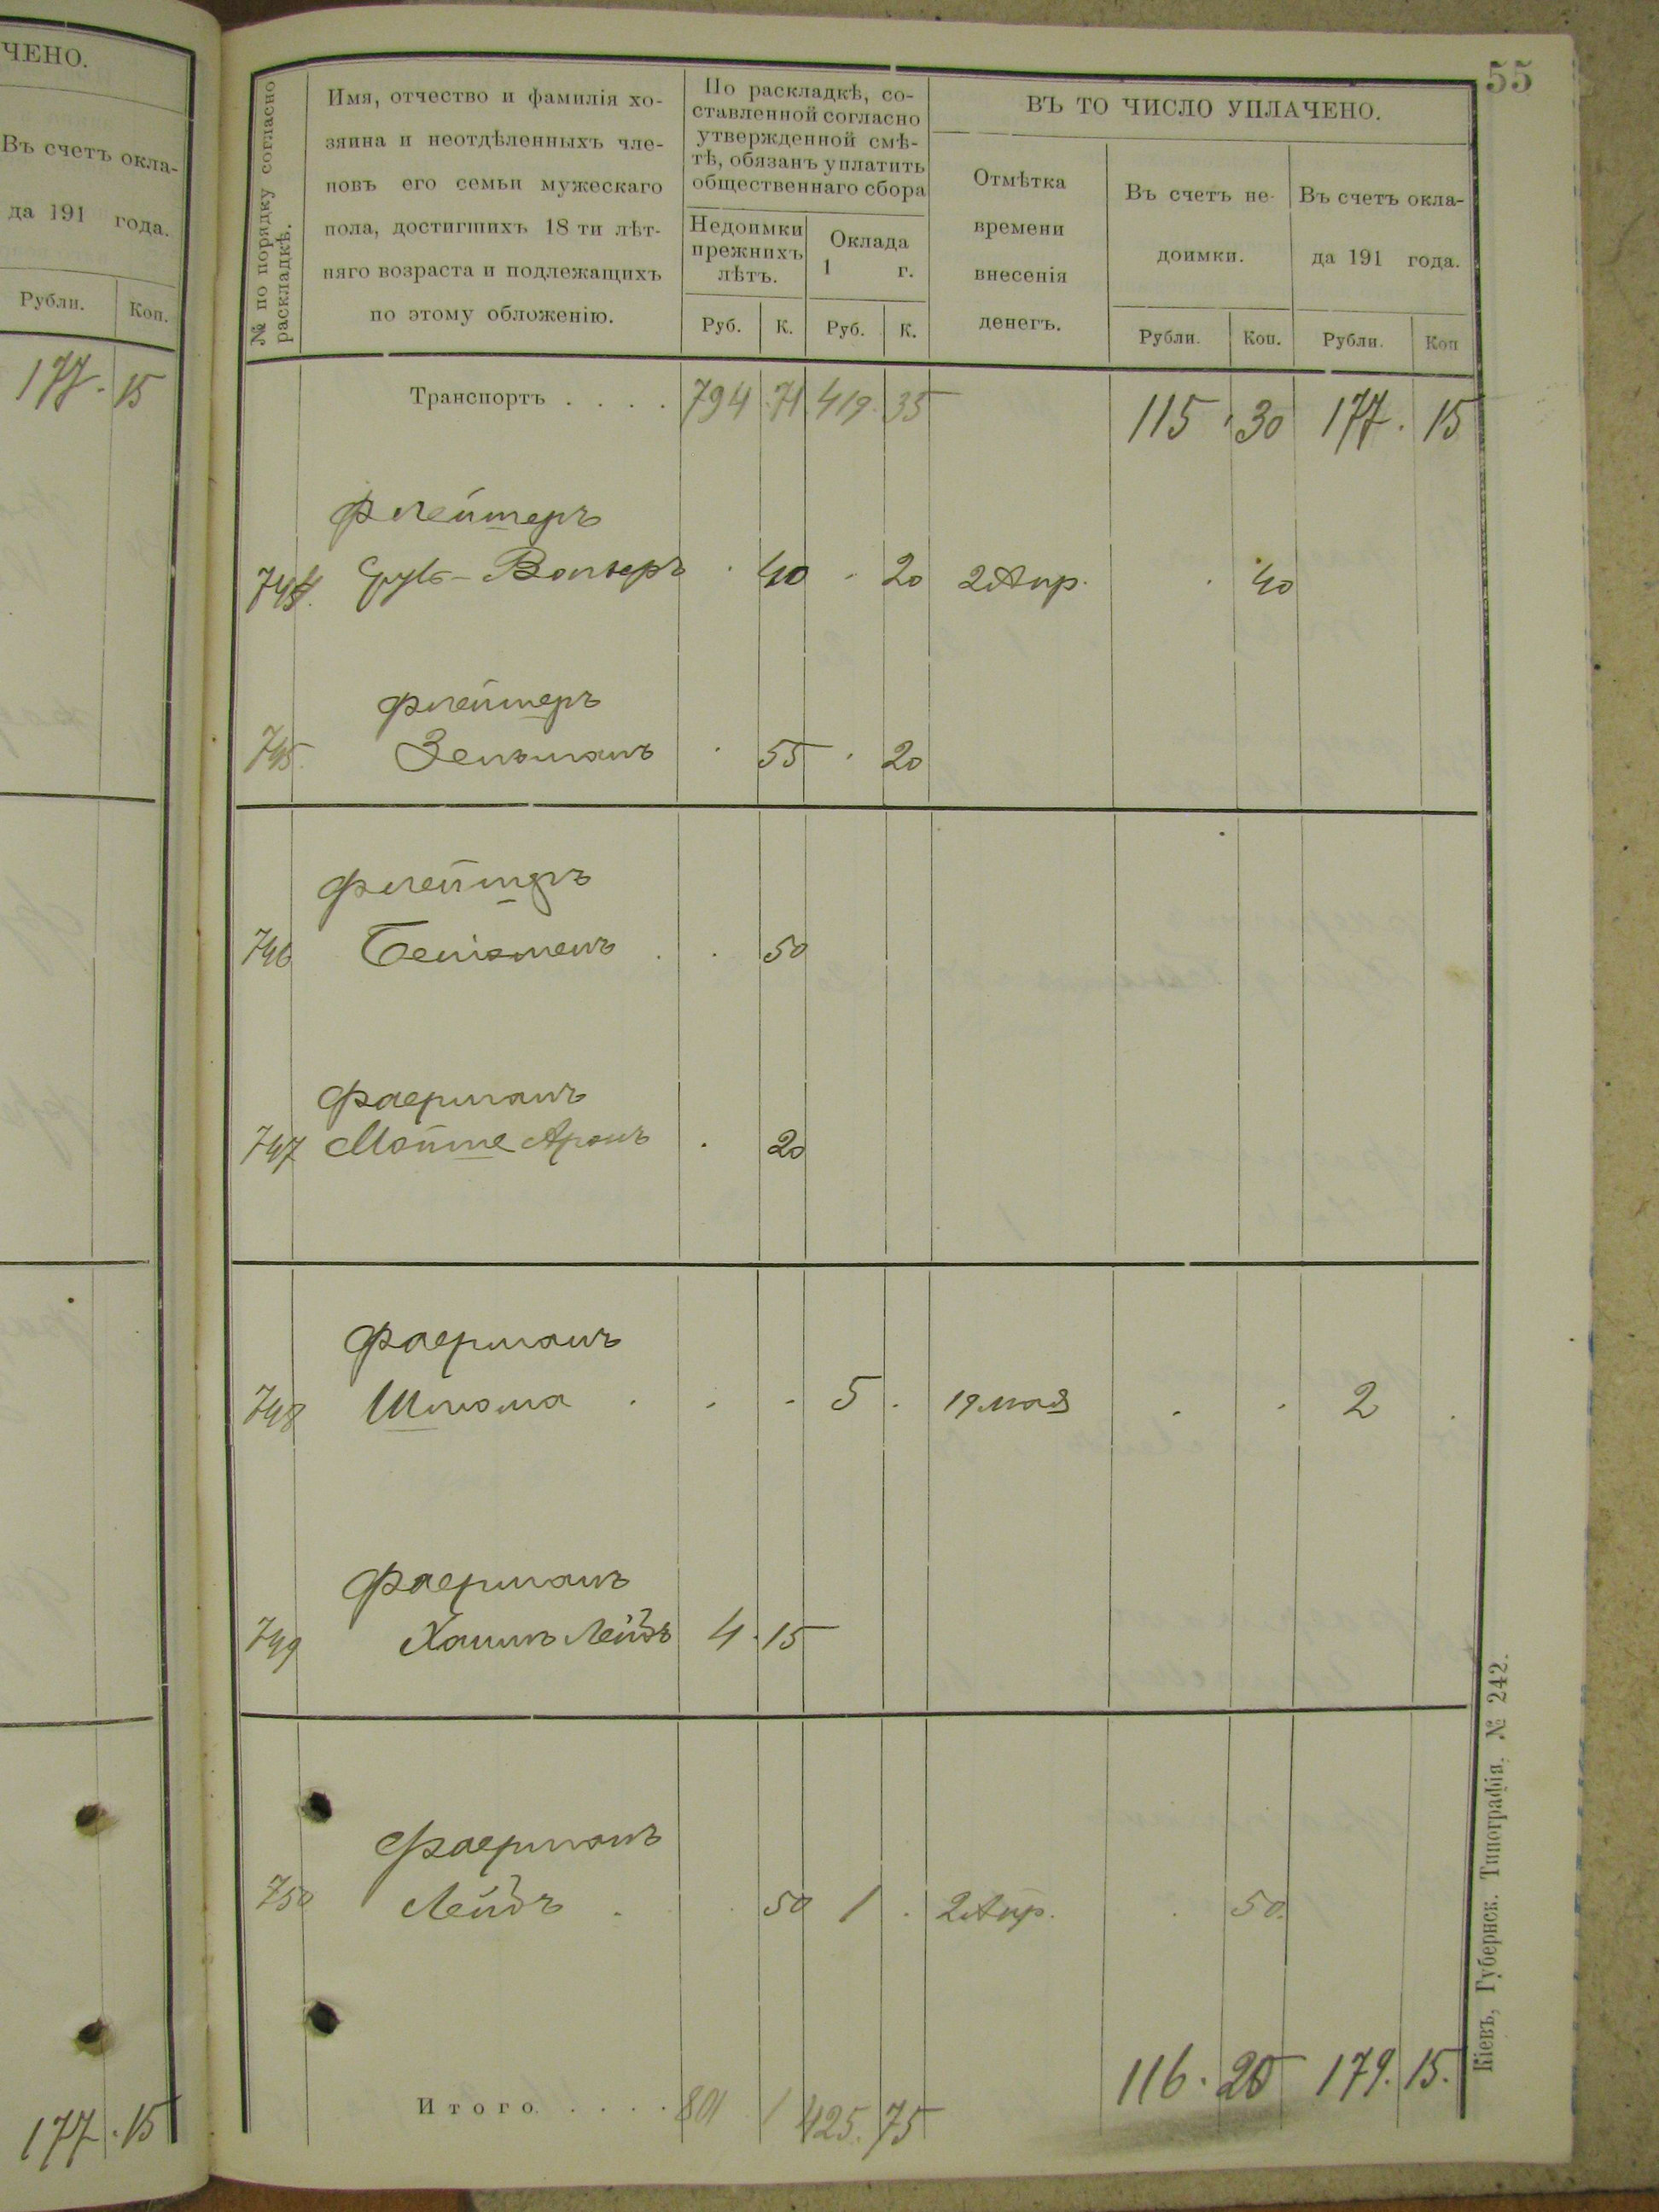 ЧЕНО.
Въ счетъ окла-
да 191 года.
Рубли. Коп.
177. 15
177. 15
55
№ по порядку согласно
раскладкѣ.
Имя, отчество и фамилія хо-
зяина и неотдѣленныхъ чле-
новъ его семьи мужескаго
пола, достигшихъ 18 ти лѣт-
няго возраста и подлежащихъ
по этому обложенію.
По раскладкѣ, со-
ставленной согласно
утвержденной смѣ-
тѣ, обязанъ уплатить
общественнаго сбора
Недоимки
прежнихъ
лѣтъ.
Оклада
1 г.
Руб. К. Руб. К.
ВЪ ТО ЧИСЛО УПЛАЧЕНО.
Отмѣтка
времени
внесенія
денегъ.
Въ счетъ не-
доимки.
Рубли. Коп.
Въ счетъ окла-
да 191 года.
Рубли. Коп
Транспортъ . . . . 794 71 419. 35 115. 30 177. 15
Флейтеръ
744. Вольферъ . 40 . 20 2 Апр. . 40
Флейтеръ
745. Зельманъ . 55 . 20
Флейтеръ
746 Беніоменъ . . 50
Фаерманъ
747 Мойше Аронъ . 20
Фаерманъ
748 Шлома . . . 5 . 19 мая . . 2 .
Фаерманъ
749 Хаимъ Лейбъ 4. 15
Фаерманъ
750 Лейбъ . . 50 1 . 2 Апр. . 50.
Итого. . . . . 801 1 425. 75 116. 20 179. 15.
Кіевъ, Губернск. Типографія, № 242.